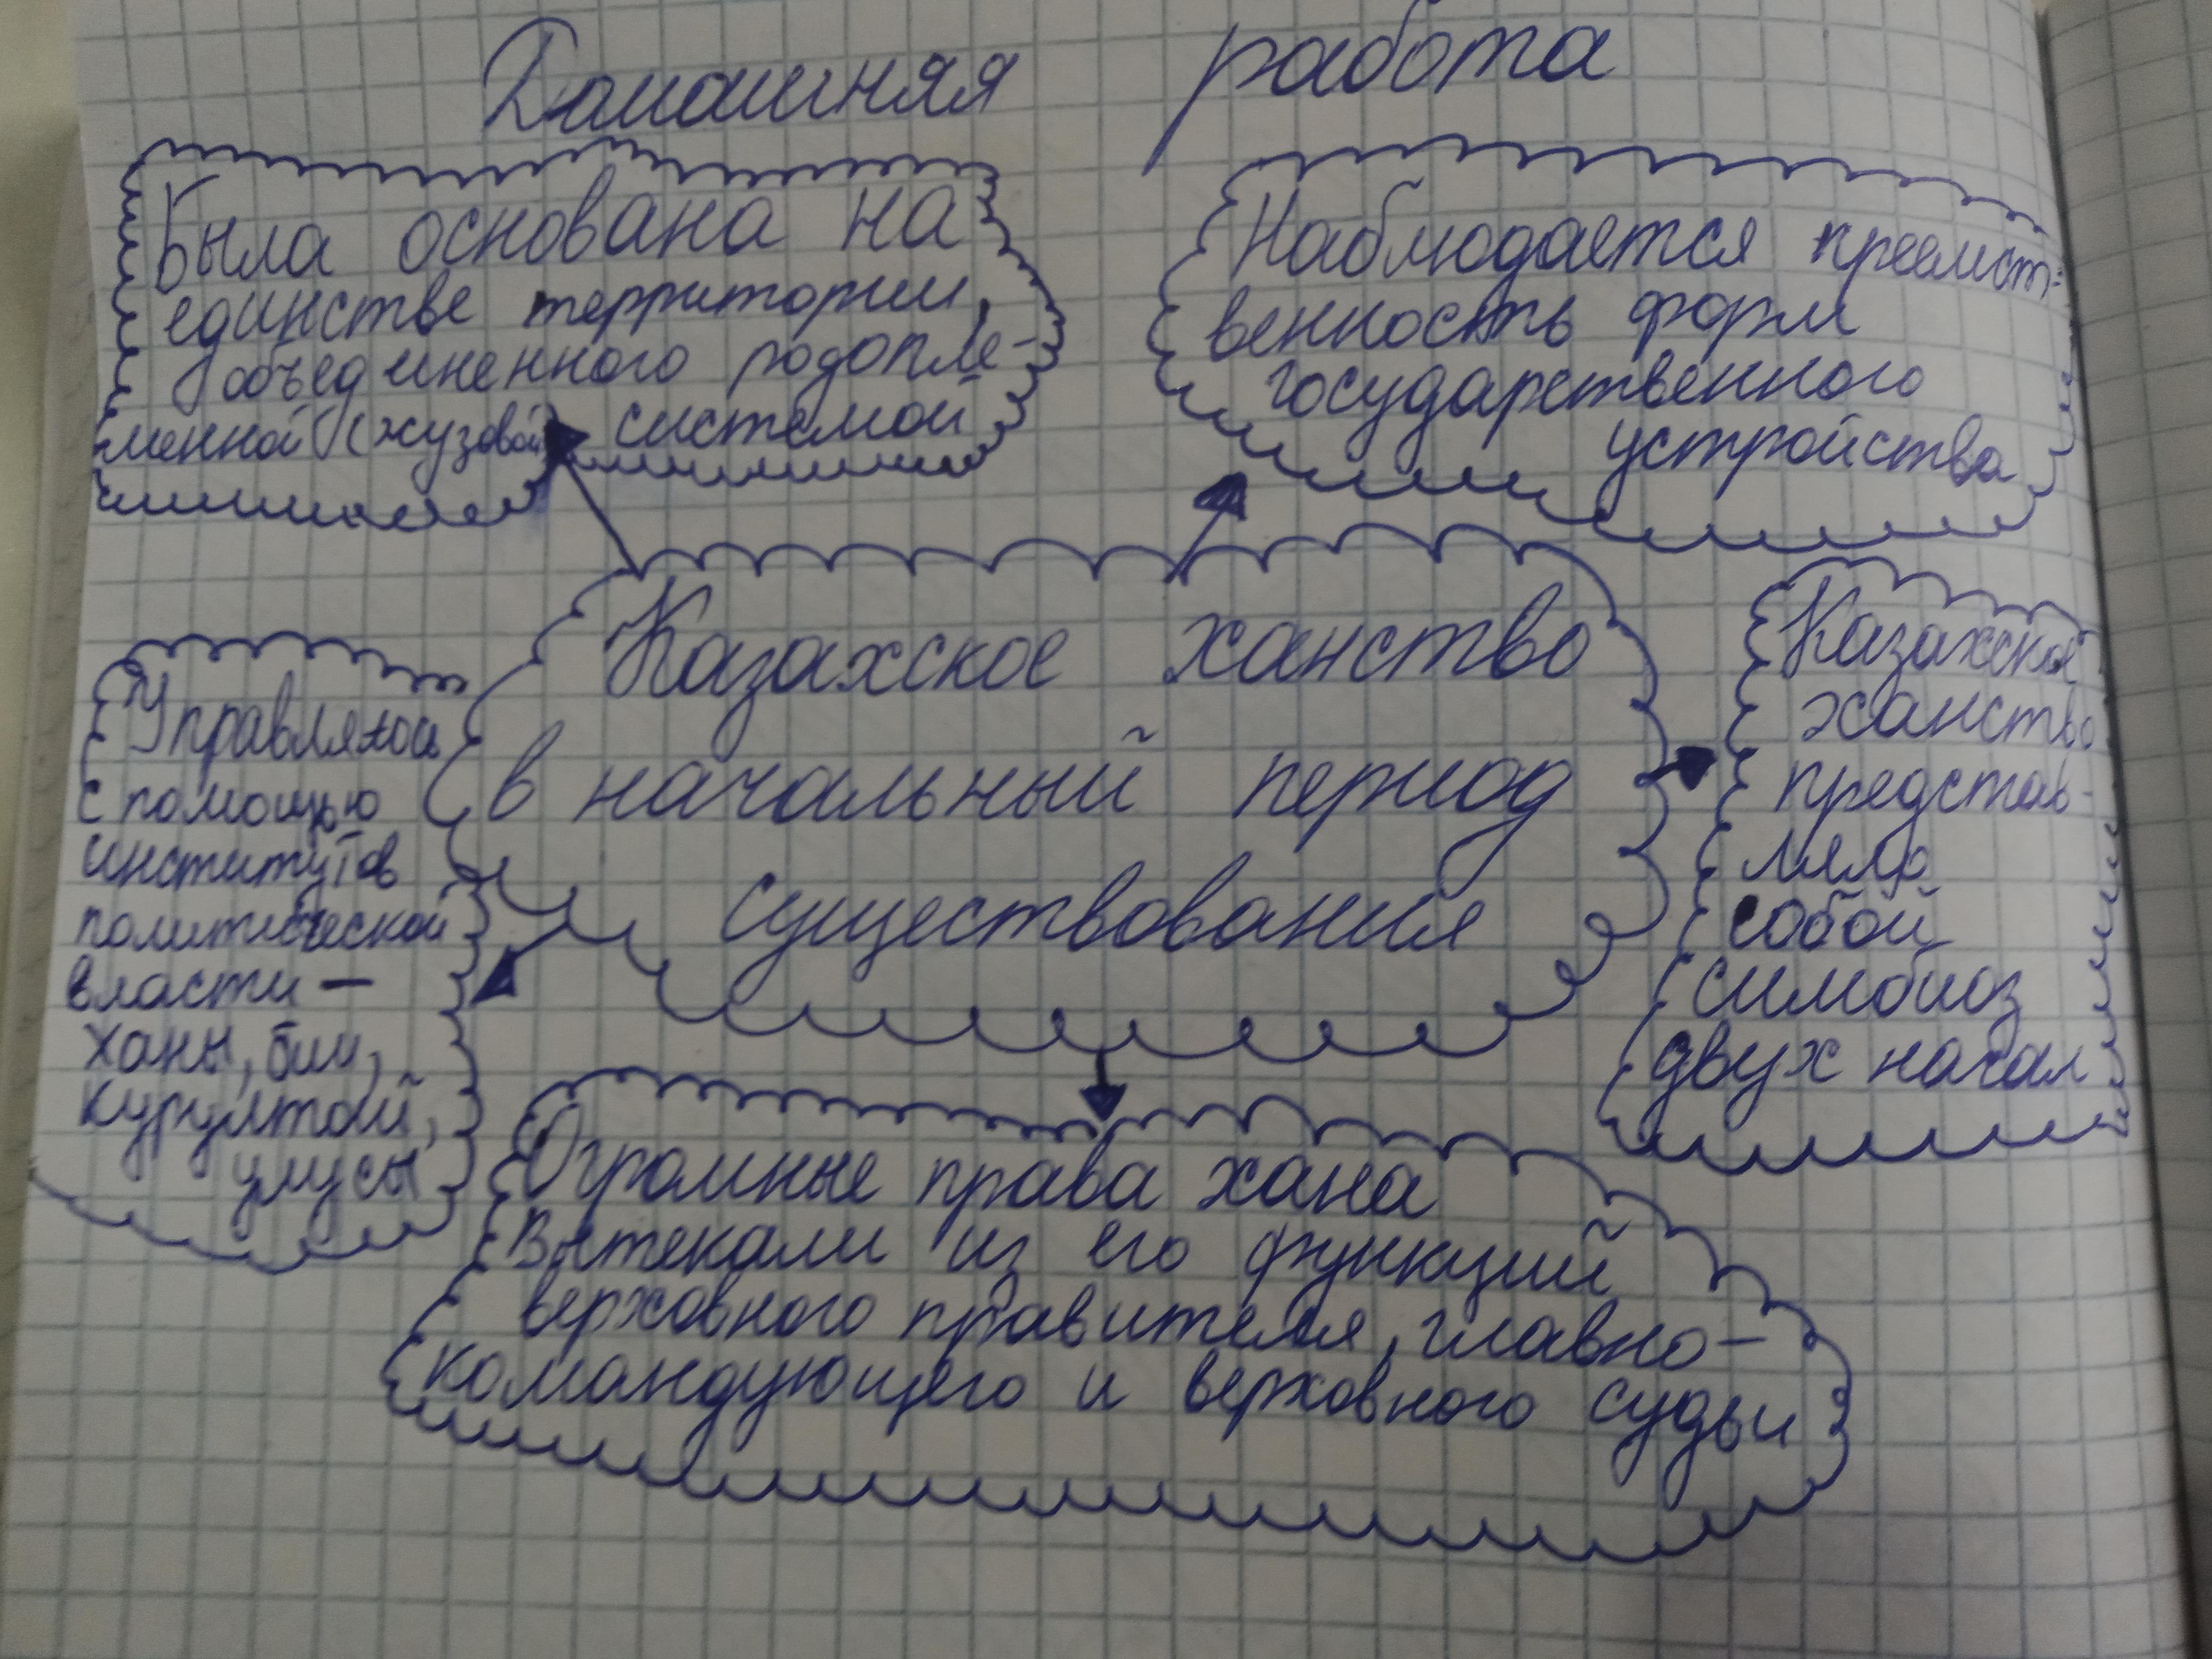 Домашняя работа
Была основана на
единстве территории,
объединенного родопле-
менной (жузовой) системой
Наблюдается преемст-
венность форм
государственного
устройства
Казахское ханство
в начальный период
существования
Управлялось
с помощью
институтов
политической
власти —
ханы, бии,
курултай,
улусы
Казахское
ханство
представ-
ляло
собой
симбиоз
двух начал
Огромные права хана
вытекали из его функций
верховного правителя, главно-
командующего и верховного судьи